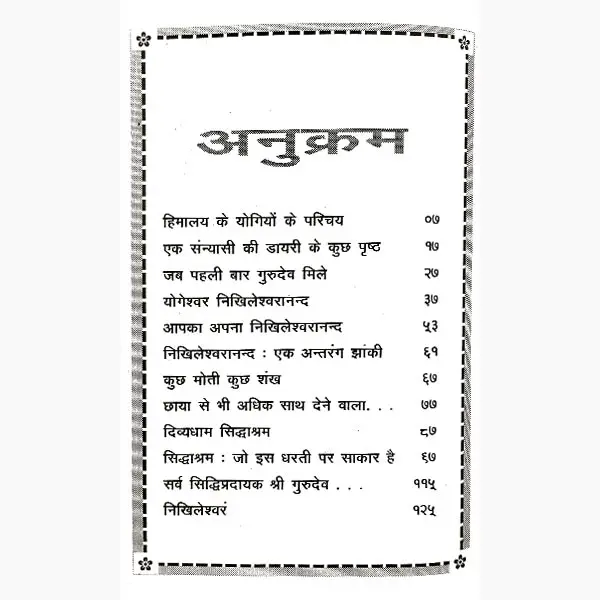 अनुक्रम
हिमालय के योगियों के परिचय ०७
एक संन्यासी की डायरी के कुछ पृष्ठ १७
जब पहली बार गुरुदेव मिले २७
योगेश्वर निखिलेश्वरानन्द ३७
आपका अपना निखिलेश्वरानन्द ५३
निखिलेश्वरानन्द : एक अन्तरंग झांकी ६१
कुछ मोती कुछ शंख ६७
छाया से भी अधिक साथ देने वाला. . . ७७
दिव्यधाम सिद्धाश्रम ८७
सिद्धाश्रम : जो इस धरती पर साकार है ६७
सर्व सिद्धिप्रदायक श्री गुरुदेव . . . ११५
निखिलेश्वरं १२५